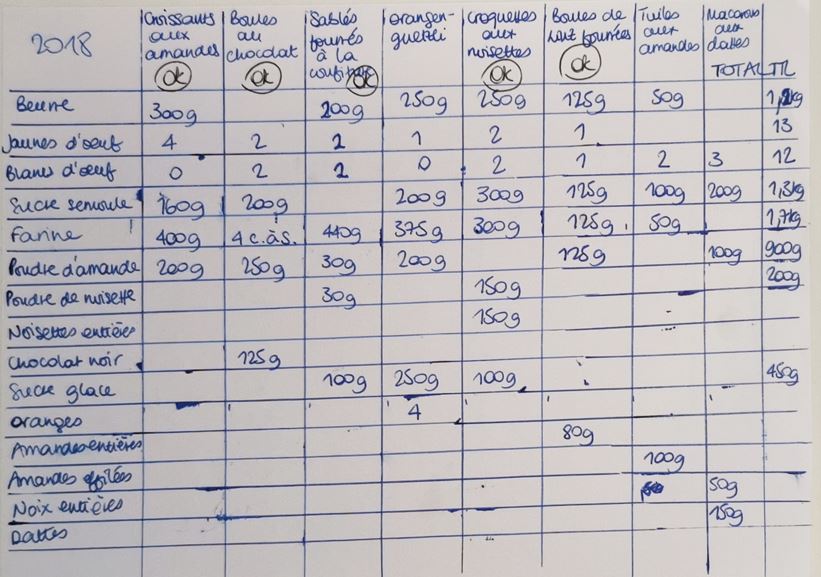 2018
Croissants aux amandes OK
Boules au chocolat OK
Sablés fourrés à la OK
orangen-guettli
Croquettes aux noisettes OK
Boules de fourrées OK
Tuiles aux amandes
Macarons aux dattes
TOTAL TTL
Beurre 300g 200g 250g 250g 125g 50g
Jaunes d'œuf 4 2 2 1 2 1 13
Blancs d'œuf 0 2 2 0 2 1 2 3 12
Sucre semoule 160g 200g 200g 300g 125g 100g 200g 1,3kg
Farine 400g 4 c.à.s. 440g 375g 300g 125g 50g 1,7kg
Poudre d'amande 200g 250g 30g 200g 125g 100g 900g
Poudre de noisette 30g 150g 200g
Noisettes entières 150g
Chocolat noir 125g
Sucre glace 100g 250g 100g 450g
oranges 4
Amandes entières 80g
Amandes effilées 100g
Noix entières 50g
Dattes 150g